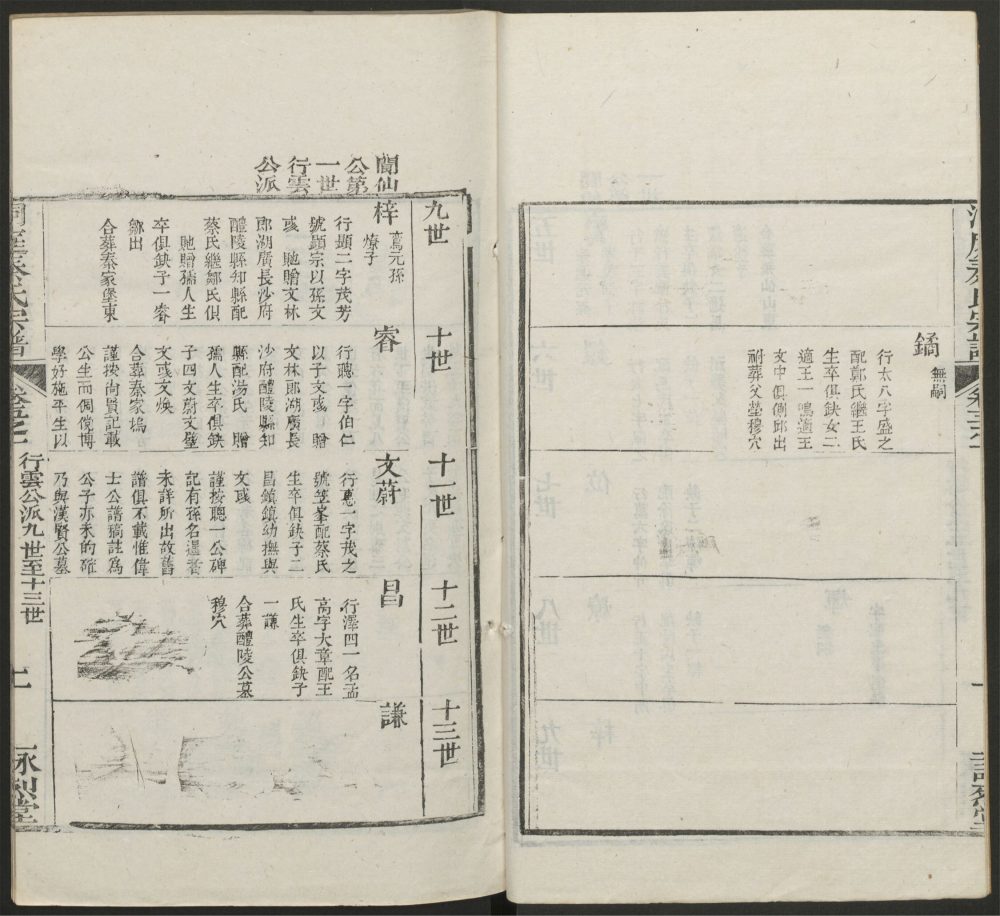 鐍
無嗣
行太八字盛之
配鄭氏繼王氏
生卒俱缺女二
適王一鳴適王
文中俱側邱出
祔葬父塋穆穴
閬仙
公第
一世
行雲
公派
九世
梓
鸞元孫
燎子
行顯二字茂芳
號顯宗以孫文
彧 貤贈文林
郎湖廣長沙府
醴陵縣知縣配
蔡氏繼鄒氏俱
貤贈孺人生
卒俱缺子一睿
鄒出
合葬秦家堡東
十世
睿
行聰一字伯仁
以子文彧 贈
文林郎湖廣長
沙府醴陵縣知
縣配湯氏 贈
孺人生卒俱缺
子四文蔚文璧
文彧文煥
合葬秦家塢
謹按尚賢記載
公生而倜儻博
學好施平生以
十一世
文蔚
行惠一字茂之
號笠峯配蔡氏
生卒俱缺子二
昌鎮鎮幼撫與
文彧
謹按聰一公碑
記有孫名暹者
未詳所出故舊
譜俱不載惟偉
士公譜稿註為
公子亦未的確
乃與漢賢公墓
十二世
昌
行澤四一名孟
高字大章配王
氏生卒俱缺子
一謙
合葬醴陵公墓
穆穴
十三世
謙
行雲公派九世至十三世